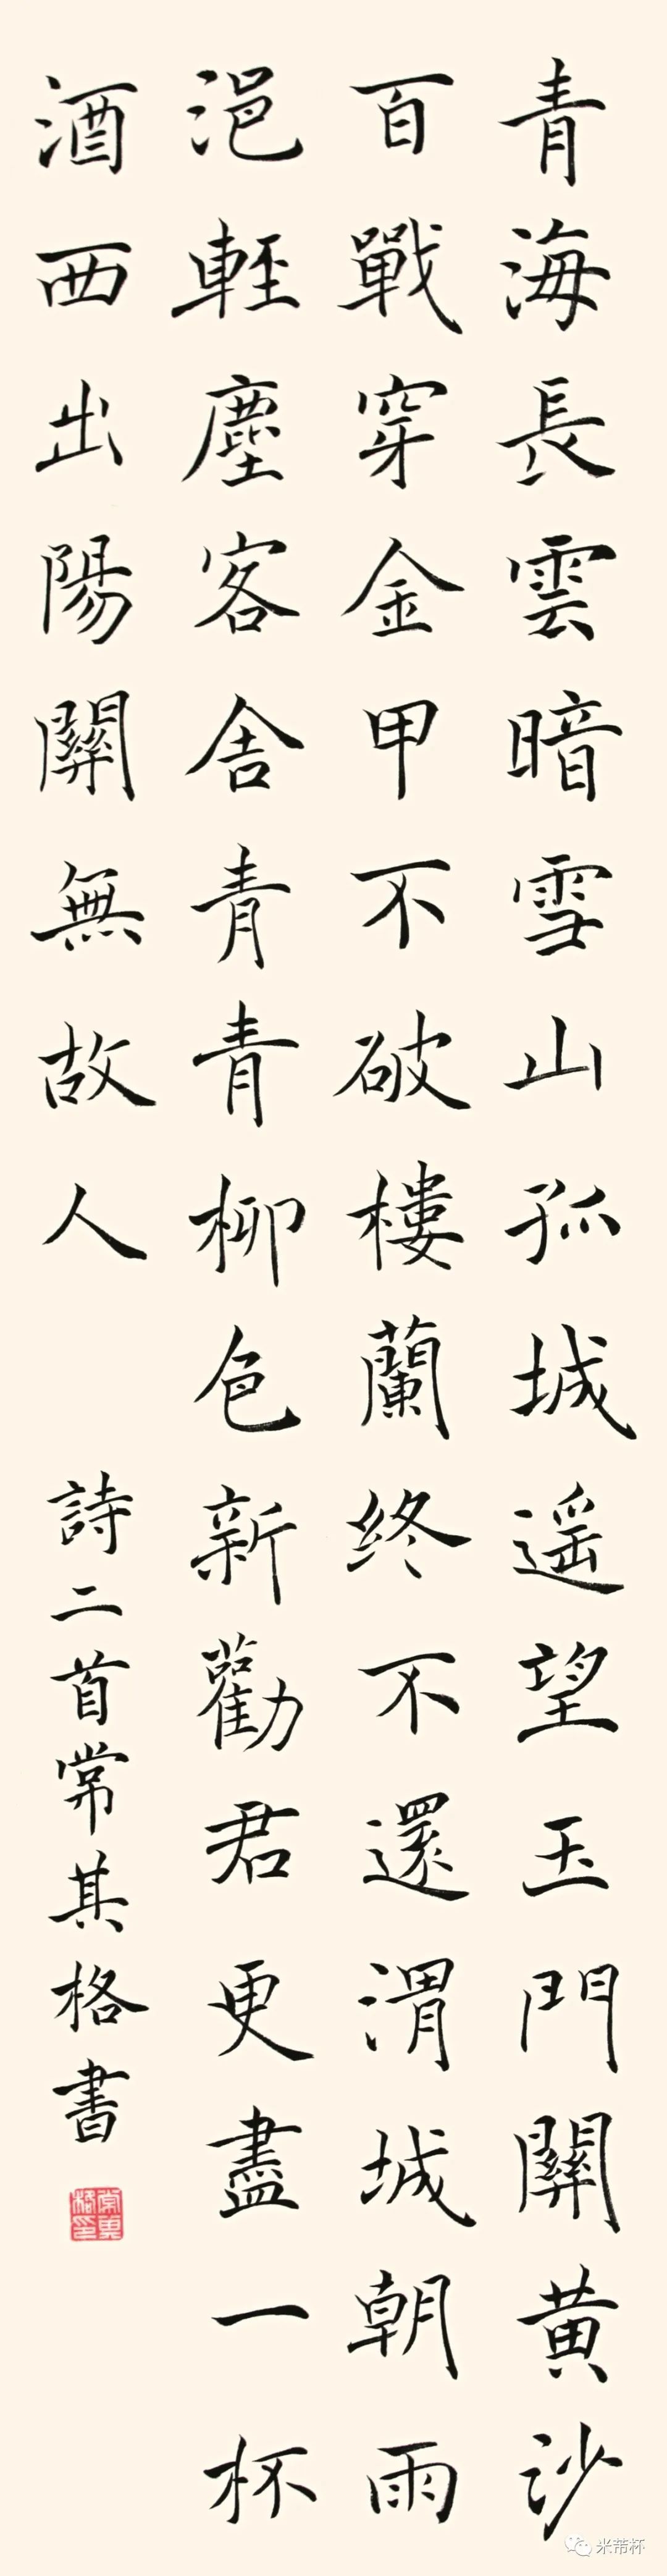 青海長雲暗雪山孤城遥望玉門關黄沙
百戰穿金甲不破樓蘭終不還渭城朝雨
浥輕塵客舍青青柳色新勸君更盡一杯
酒西出陽關無故人
詩二首常其格書
常其格印
米芾杯